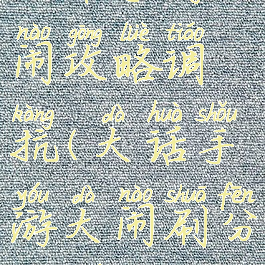 nào gōng lüè tiáo
闹攻略调
kàng dà huà shǒu
抗(大话手
yóu dà nào shuā fēn
游大闹刷分